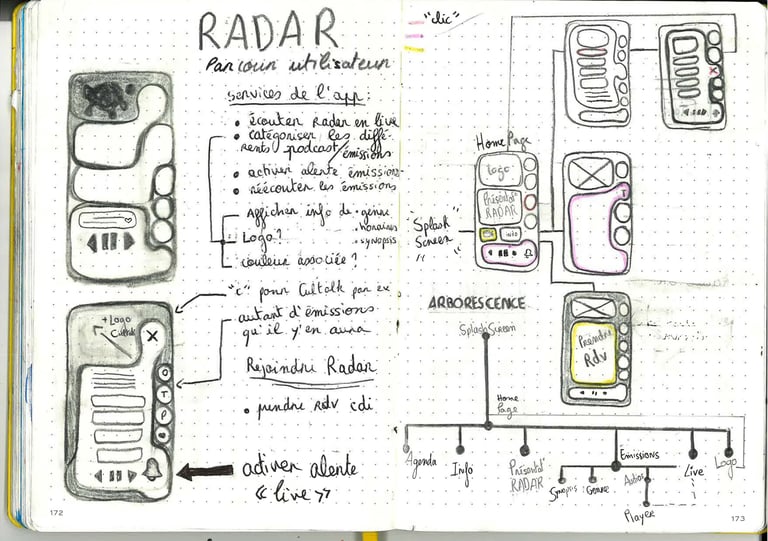 RADAR
Parcour utilisateur
services de l'app :
• écouter Radar en live
• catégoriser les diffé-
rents podcast / émissions
• activer alerte émissions
• réécouter les émissions
Afficher info de • genre
• horaires
• synopsis
Logo ?
couleur associée ?
"c" pour Cultalk par ex
autant d'émissions
qu'il y'en aura
+ Logo
Cultalk
X
O
T
P
Rejoindre Radar
• prendre rdv cdi
activer alerte
« live »
172
"clic"
X
HomePage
Logo
Présentat°
RADAR
info
"Splash
Screen"
T
Prendre
Rdv
ARBORESCENCE
SplashScreen
Home
Page
Agenda
Info
Présentat°
RADAR
Emissions
Live
Logo
Synopsis
Genre
Audios
Player
173